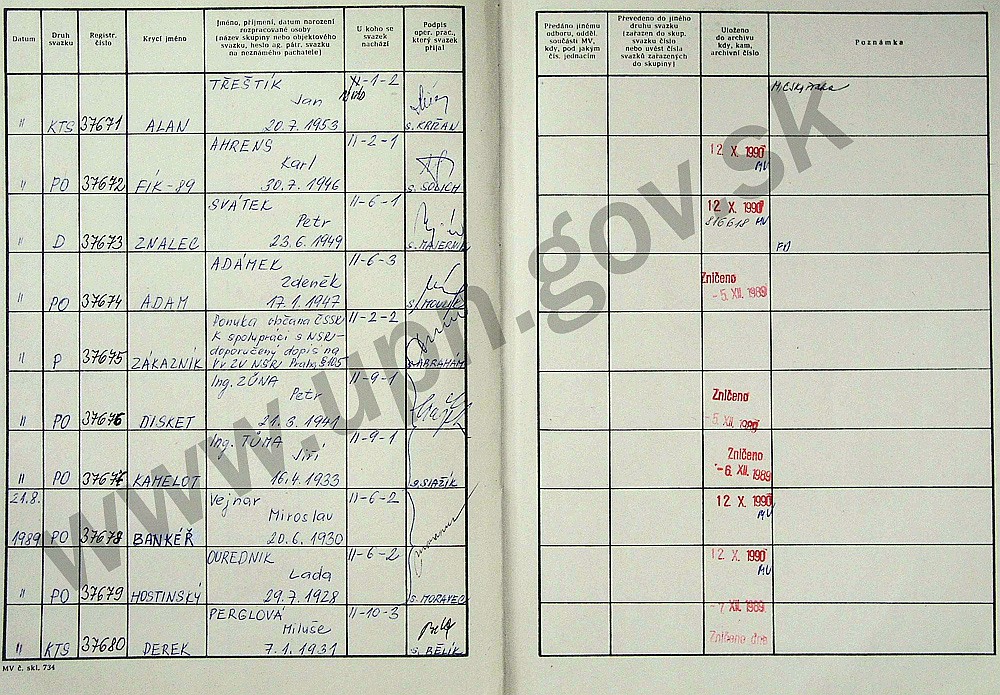 Datum
Druh svazku
Registr. číslo
Krycí jméno
Jméno, příjmení, datum narození
rozpracované osoby
(název skupiny nebo objektového
svazku, heslo ag. pátr. svazku
na neznámého pachatele)
U koho se
svazek
nachází
Podpis
oper. prac.,
který svazek
přijal
Předáno jinému
odboru, odděl.
součásti MV,
kdy, pod jakým
čís. jednacím
Převedeno do jiného
druhu svazku
(zařazen do skup.
svazku číslo
nebo uvést čísla
svazků zařazených
do skupiny)
Uloženo
do archivu
kdy, kam,
archivní číslo
Poznámka
TŘEŠTÍK -1-2
Jan
" KTS 37671 ALAN 20.7.1953 s. KRIŽAN
AHRENS 11-2-1 12. X. 1990
Karl MV
" PO 37672 FÍK-89 30.7.1946 s. SOLICH
SVÁTEK 11-6-1 12. X. 1990
Petr 816618 MV
" D 37673 ZNALEC 23.6.1949 s. MAJERNIK
ADÁMEK 11-6-3 Zničeno
Zdeněk -5. XII. 1989
" PO 37674 ADAM 17.1.1947
Ponuka občana ČSSR 11-2-2
K spolupráci s NSR-
doporučený dopis na
" P 37675 ZÁKAZNÍK ZÚ NSR Praha, §105 ABRAHÁM
Ing. ZŮNA 11-9-1 Zničeno
Petr -5. XII. 1989
" PO 37676 DISKET 21.3.1941
Ing. TŮMA 11-9-1 Zničeno
Jiří -6. XII. 1989
" PO 37677 KAMELOT 16.4.1933 s. SIAŽIK
21.8. Vejnar 11-6-2 12. X. 1990
Miroslav MV
1989 PO 37678 BANKÉŘ 20.6.1930
OUREDNIK 11-6-2 12. X. 1990
Lada MV
" PO 37679 HOSTINSKÝ 29.7.1928 s. MORAVEC
PERGLOVÁ 11-10-3 -7. XII. 1989
Miluše Zničeno dne
" KTS 37680 DEREK 7.1.1931 s. BĚLÍK
MV č. skl. 734
www.upn.gov.sk